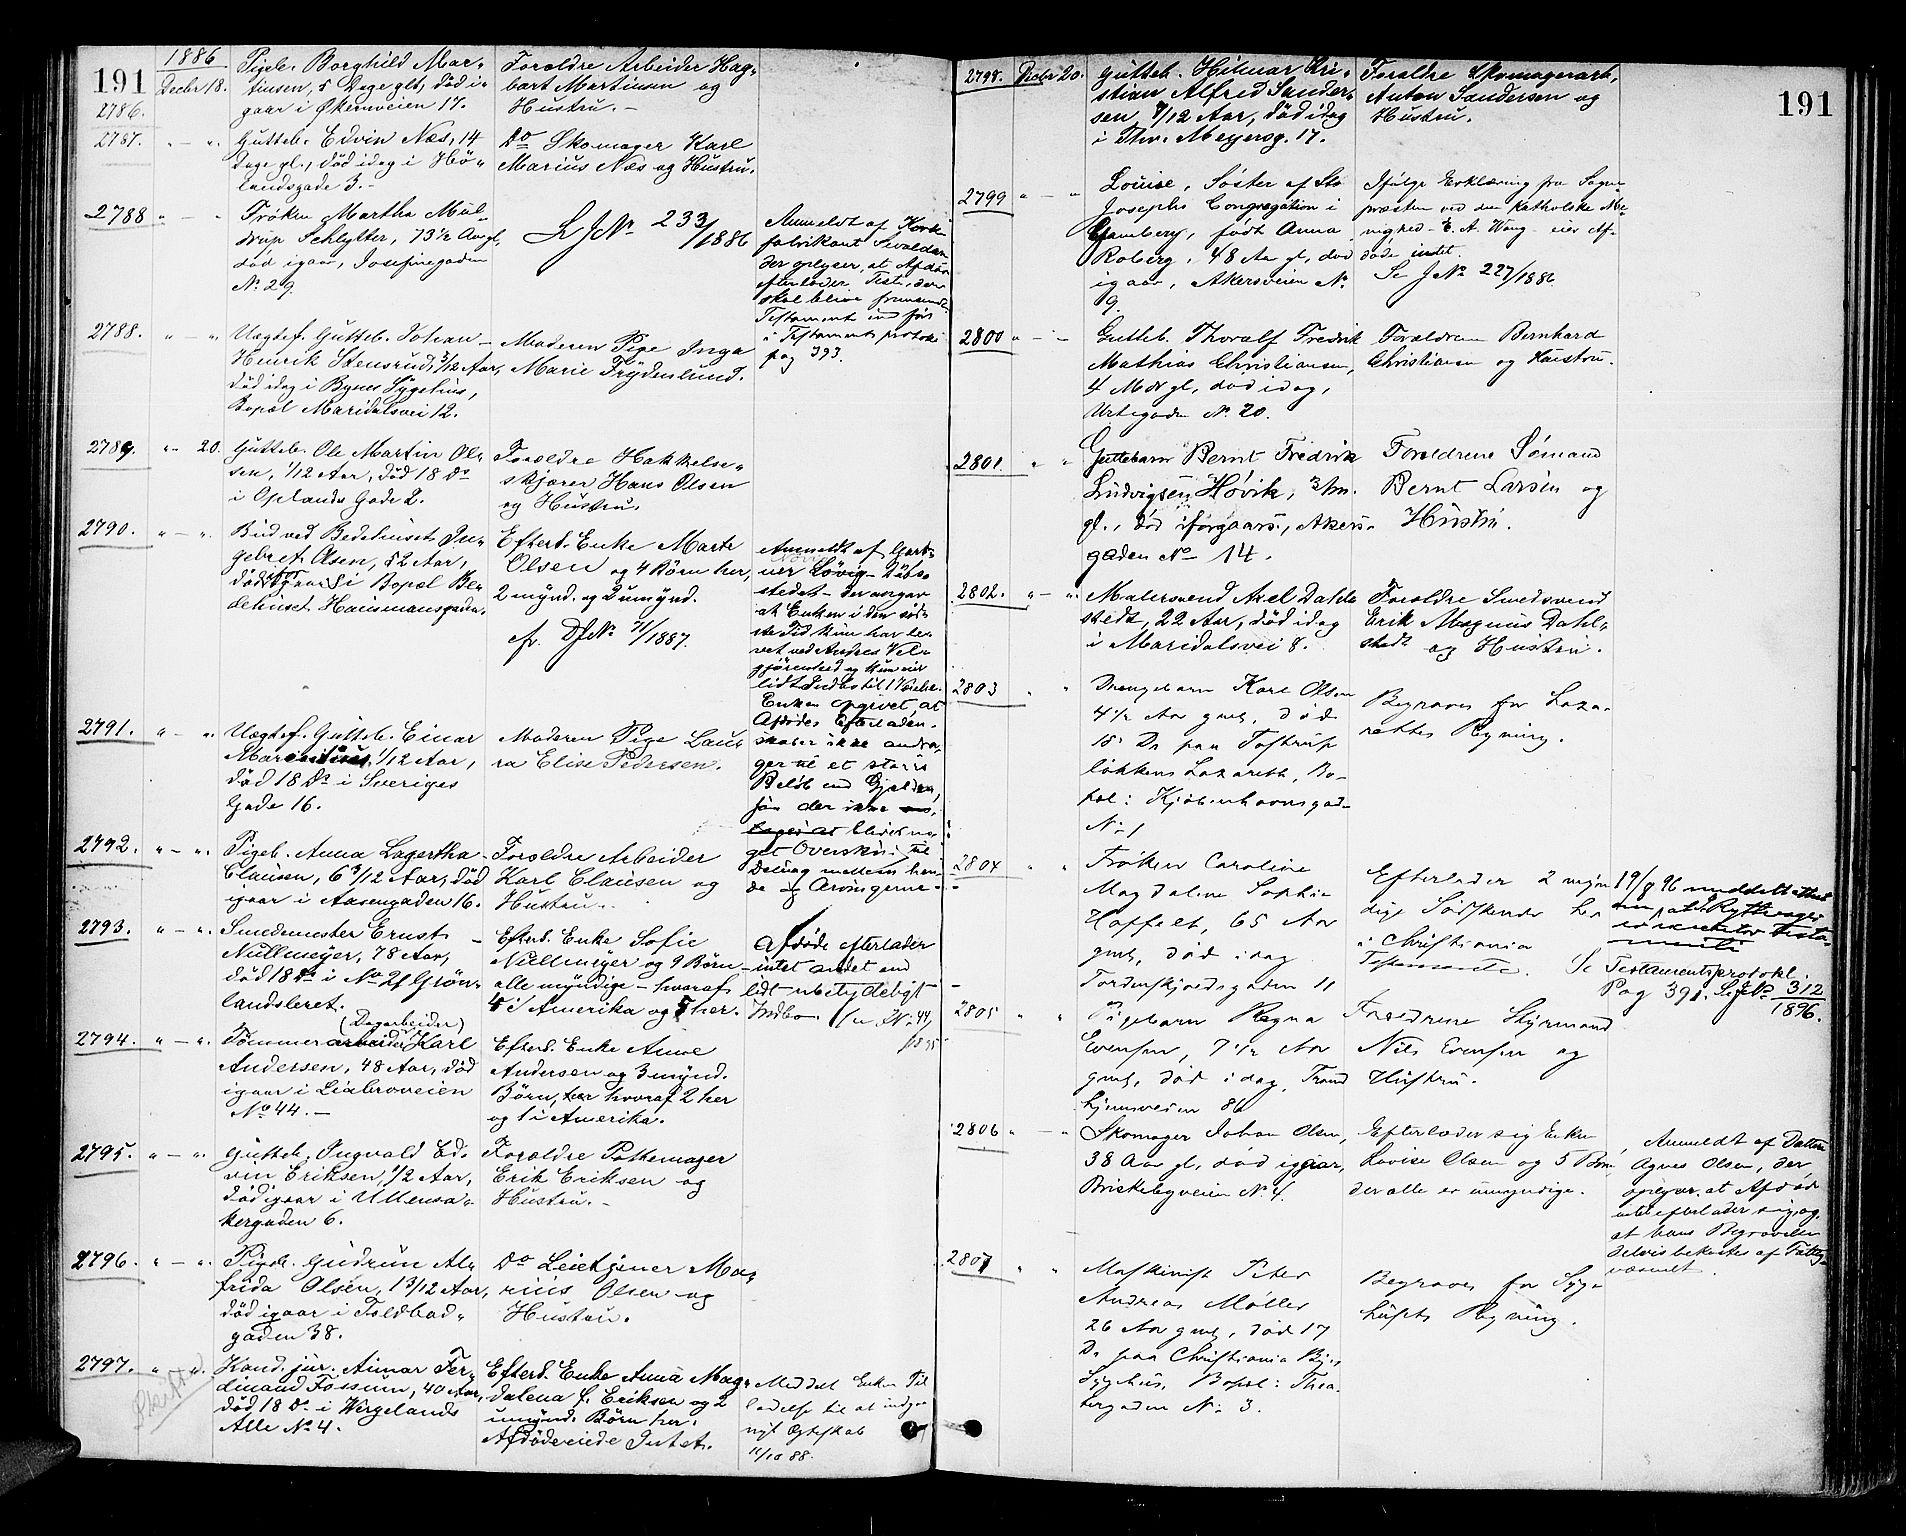 191
1886
2786.
Decbr 18.
Pigeb. Borghild Mar-
tinsen, 5 Dage gl., död i-
gaar i Økernveien 17.
Forældre Arbeider Hag-
bart Martinsen og
Hustru. -
2787.
" - ".
Gutteb. Edvin Næs, 14
Dage gl., död idag i Hö-
landsgade 3. -
Do Skomager Karl
Marius Næs og Hustru.
2788
" - "
Frøken Martha Mul-
drup Schlytter, 73 1/2 Aar gl,
død igaar, Josefinegaden
No 29.
JNo 233/1886
Anmeldt af
fabrikant
der oplyser, at Afdøde
efterlader Test., der
skal blive fremsendt
Testamente indført
i Testamentsprotokol
pag 393.
2788.
" - ".
Uægtef. Gutteb. Johan
Henrik Stensrud, 3/12 Aar,
död idag i Byens Sygehus,
Bopæl Maridalsvei 12.
Moderen Pige Inga
Marie Frydenlund.
2789.
" - 20.
Gutteb. Ole Martin Ol-
sen, 1/12 Aar, död 18 Ds
i Oplands Gade 2.
Forældre Hakkelse-
skjærer Hans Olsen
og Hustru.
2790.
" - ".
Bud ved Bedehuset In-
gebret Olsen, 52 Aar,
död igaar i Bopæl Be-
dehuset Hausmansgaden.
Efterl. Enke Marte
Olsen og 4 Börn her,
2 mynd. og 2 umynd.
cfr. DJNo 71/1887.
Anmeldt af Gart-
ner Lövig
stedet - der angav
at Enken i den sids-
te Tid kun har le-
vet ved Andres Vel-
gjörenhed og kun eier
lidt Indbo til 1 Værelse.
Enken opgivet, at
Afdödes Efterladen-
skaber ikke andra-
ger til et större
Belöb end Gjelden,
saa der ikke
bliver no-
get Overskud til
Deling mellem hen-
de og Arvingerne -
2791.
" - ".
Uægtef. Gutteb. Einar
Marinius, 1/12 Aar,
död 18 Ds i Sveriges
Gade 16.
Moderen Pige Lau-
ra Elise Pedersen.
2792.
" - ".
Pigeb. Anna Lagertha
Clausen, 6 3/12 Aar, död
igaar i Aasengaden 16.
Forældre Arbeider
Karl Clausen og
Hustru.
2793.
" - ".
Smedemester Ernst
Nullmeyer, 78 Aar,
död 18 Ds i No 2f Grön-
landsleret.
Efterl. Enke Sofie
Nullmeyer og 9 Börn
alle myndige - hvoraf
4 i Amerika og 5 her.
Afdöde efterlader
intet andet end
lidt ubetydeligt
Indbo.
2794.
" - ".
(Dagarbeider)
Tömmerarbeider Karl
Andersen, 48 Aar, död
igaar i Liabroveien
No 44. -
Efterl. Enke Anne
Andersen og 3 mynd.
Börn, hvoraf 2 her
og 1 i Amerika.
2795.
" - ".
Gutteb. Ingvald Ed-
vin Eriksen, 1/2 Aar,
död igaar i Ullensa-
kergaden 6.
Forældre Pottemager
Erik Eriksen og
Hustru. -
2796.
" - ".
Pigeb. Gudrun Al-
frida Olsen, 1 3/12 Aar,
död igaar i Toldbod-
gaden 38.
Do Leietjener Ma-
rius Olsen og
Hustru.
2797.
" - ".
Kand. jur. Aimar Fer-
dinand Fossum, 40 Aar,
död 18 Ds i Wergelands
Alle No 4.
Efterl. Enke Anna Mag-
dalena f. Eriksen og 2
umynd. Börn her.
Afdöde eiede Intet.
Meddelt Enken Til-
ladelse til at indgaa
nyt Ægteskab
11/10 88.
191
2798.
Decbr 20.
Gutteb. Hilmar Kri-
stian Alfred Sander-
sen, 7/12 Aar, död idag
i Thv. Meyersg. 17.
Forældre Skomagerarb.
Anton Sandersen og
Hustru.
2799
" - "
Louise, Søster af St.
Josephs Congregation i
Chambery, født Anna
Roberg, 48 Aar gl, død
igaar, Akersveien No
9.
Ifølge Erklæring fra Sogne-
præsten ved den katholske Me-
nighed - E. A. Wang - eier Af-
døde intet.
Se JNo 227/1886
2800
" - "
Gutteb. Thoralf Fredrik
Mathias Christiansen,
4 Mdr gl, død idag,
Urtegaden No 20.
Forældrene Bernhard
Christiansen og Hustru.
2801
" "
Guttebarn Bernt Fredrik
Ludvigsen Høvik, 3/m.
gl., død iforgaars, Akers-
gaden No 14.
Forældrene Sömand
Bernt Larsen og
Hustru.
2802.
" - ".
Malersvend Axel Dahl-
stedt, 22 Aar, död idag
i Maridalsvei 8.
Forældre Smedsvend
Erik Magnus Dahl-
stedt og Hustru.
2803
" "
Drengebarn Karl Olsen
4 1/2 Aar gml, død
18 Ds paa Toftrup
løkkens Lazareth, Bo-
pæl: Kjøbenhavnsgad-
No 1
Begraves for Laza-
rettets Regning.
2804
" "
Frøken Caroline
Magdaline Sophie
Hoffelt, 65 Aar
gml, død idag
Tordenskjoldsgaden 11
Efterlader 2 myn-
dige Sødskende her
i Christiania
Testamente.
19/9 96 meddelt
Se Testamentsprotokl.
Pag 391. Se JNo 312/1896.
2805
" "
Pigebarn Ragna
Evensen, 7 1/2 Aar
gml, død idag, Trond
hjemsveien 86
Forældrene Styrmand
Nils Evensen og
Hustru.
2806
" - "
Skomager Johan Olsen,
38 Aar gl, død igaar,
Briskebyveien No 4.
Efterlader sig Enken
Lovise Olsen og 5 Børn
der alle er umyndige.
Anmeldt af Datteren
Agnes Olsen, der
opgiver at Afdøde
intet efterlader sig, og
at hans Begravelse
delvis bekostes af Fattig-
væsenet.
2807
" "
Maskinist Peter
Andreas Møller
26 Aar gml, død 17
Ds paa Christiania By-
Sygehus, Bopæl: Thea-
tergaden No 3.
Begraves for Syge-
husets Regning.